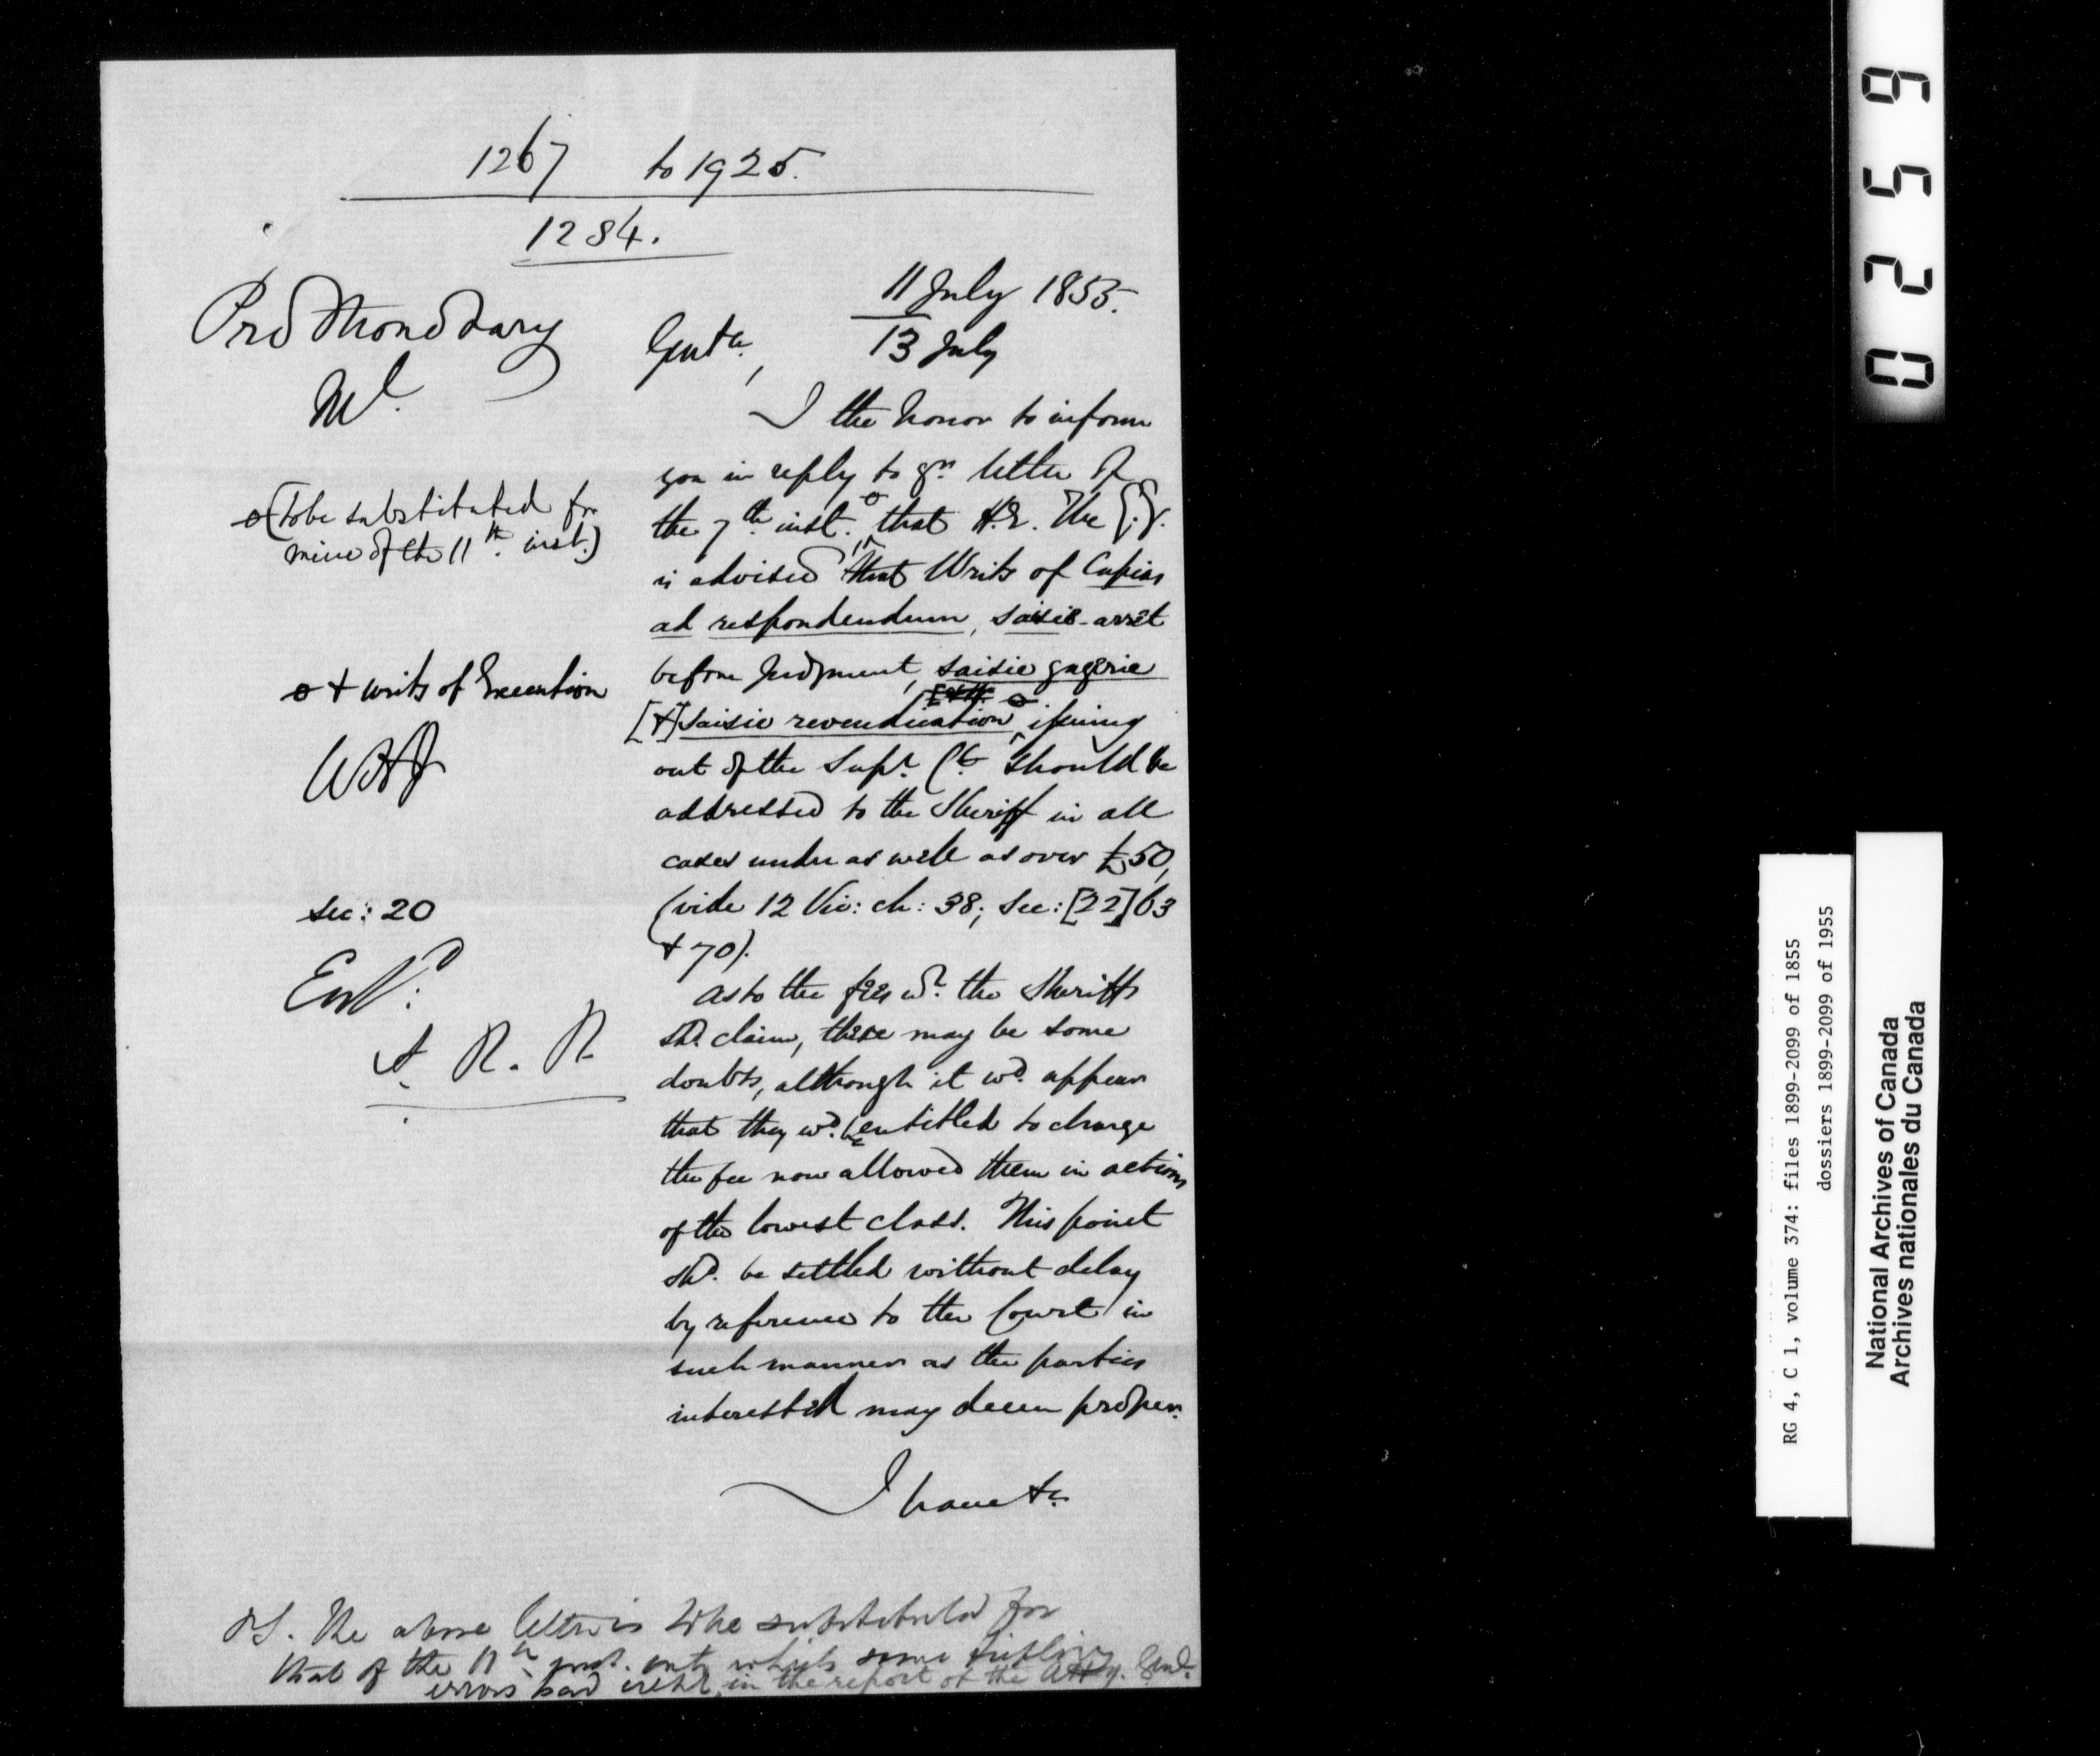 1267 to 1925.
1284.
11 July 1855.
13 July
Prothonotary
Ml.
Gentn.,
I the honor to inform
you in reply to yr. letter of
o (to be substituted for
mine of the 11th. inst.)
the 7th inst. o that H.E. The G.G.
is advised that Writs of Capias
ad respondendum, saisie-arrêt
before Judgment, saisie gagerie
o + writs of Execution
[+] saisie revendication o, issuing
out of the Supr. Ct. should be
addressed to the Sheriff in all
cases under as well as over £50,
sec: 20
(vide 12 Vic: ch: 38; Sec: [22] 63
+ 70).
As to the fees wh. the Sheriffs
shd. claim, there may be some
doubts, although it wd. appear
that they wd. be entitled to charge
the fee now allowed them in actions
of the lowest class. This point
shd. be settled without delay
by reference to the Court in
such manner as the parties
interested may deem proper.
I have &c.
Entd.:
A. R. R
The above letter is to be substituted for
that of the 11th inst. into which some trifling
errors had crept in the report of the Atty. Genl.
0259
RG 4, C 1, volume 374: files 1899-2099 of 1855
dossiers 1899-2099 of 1955
National Archives of Canada
Archives nationales du Canada